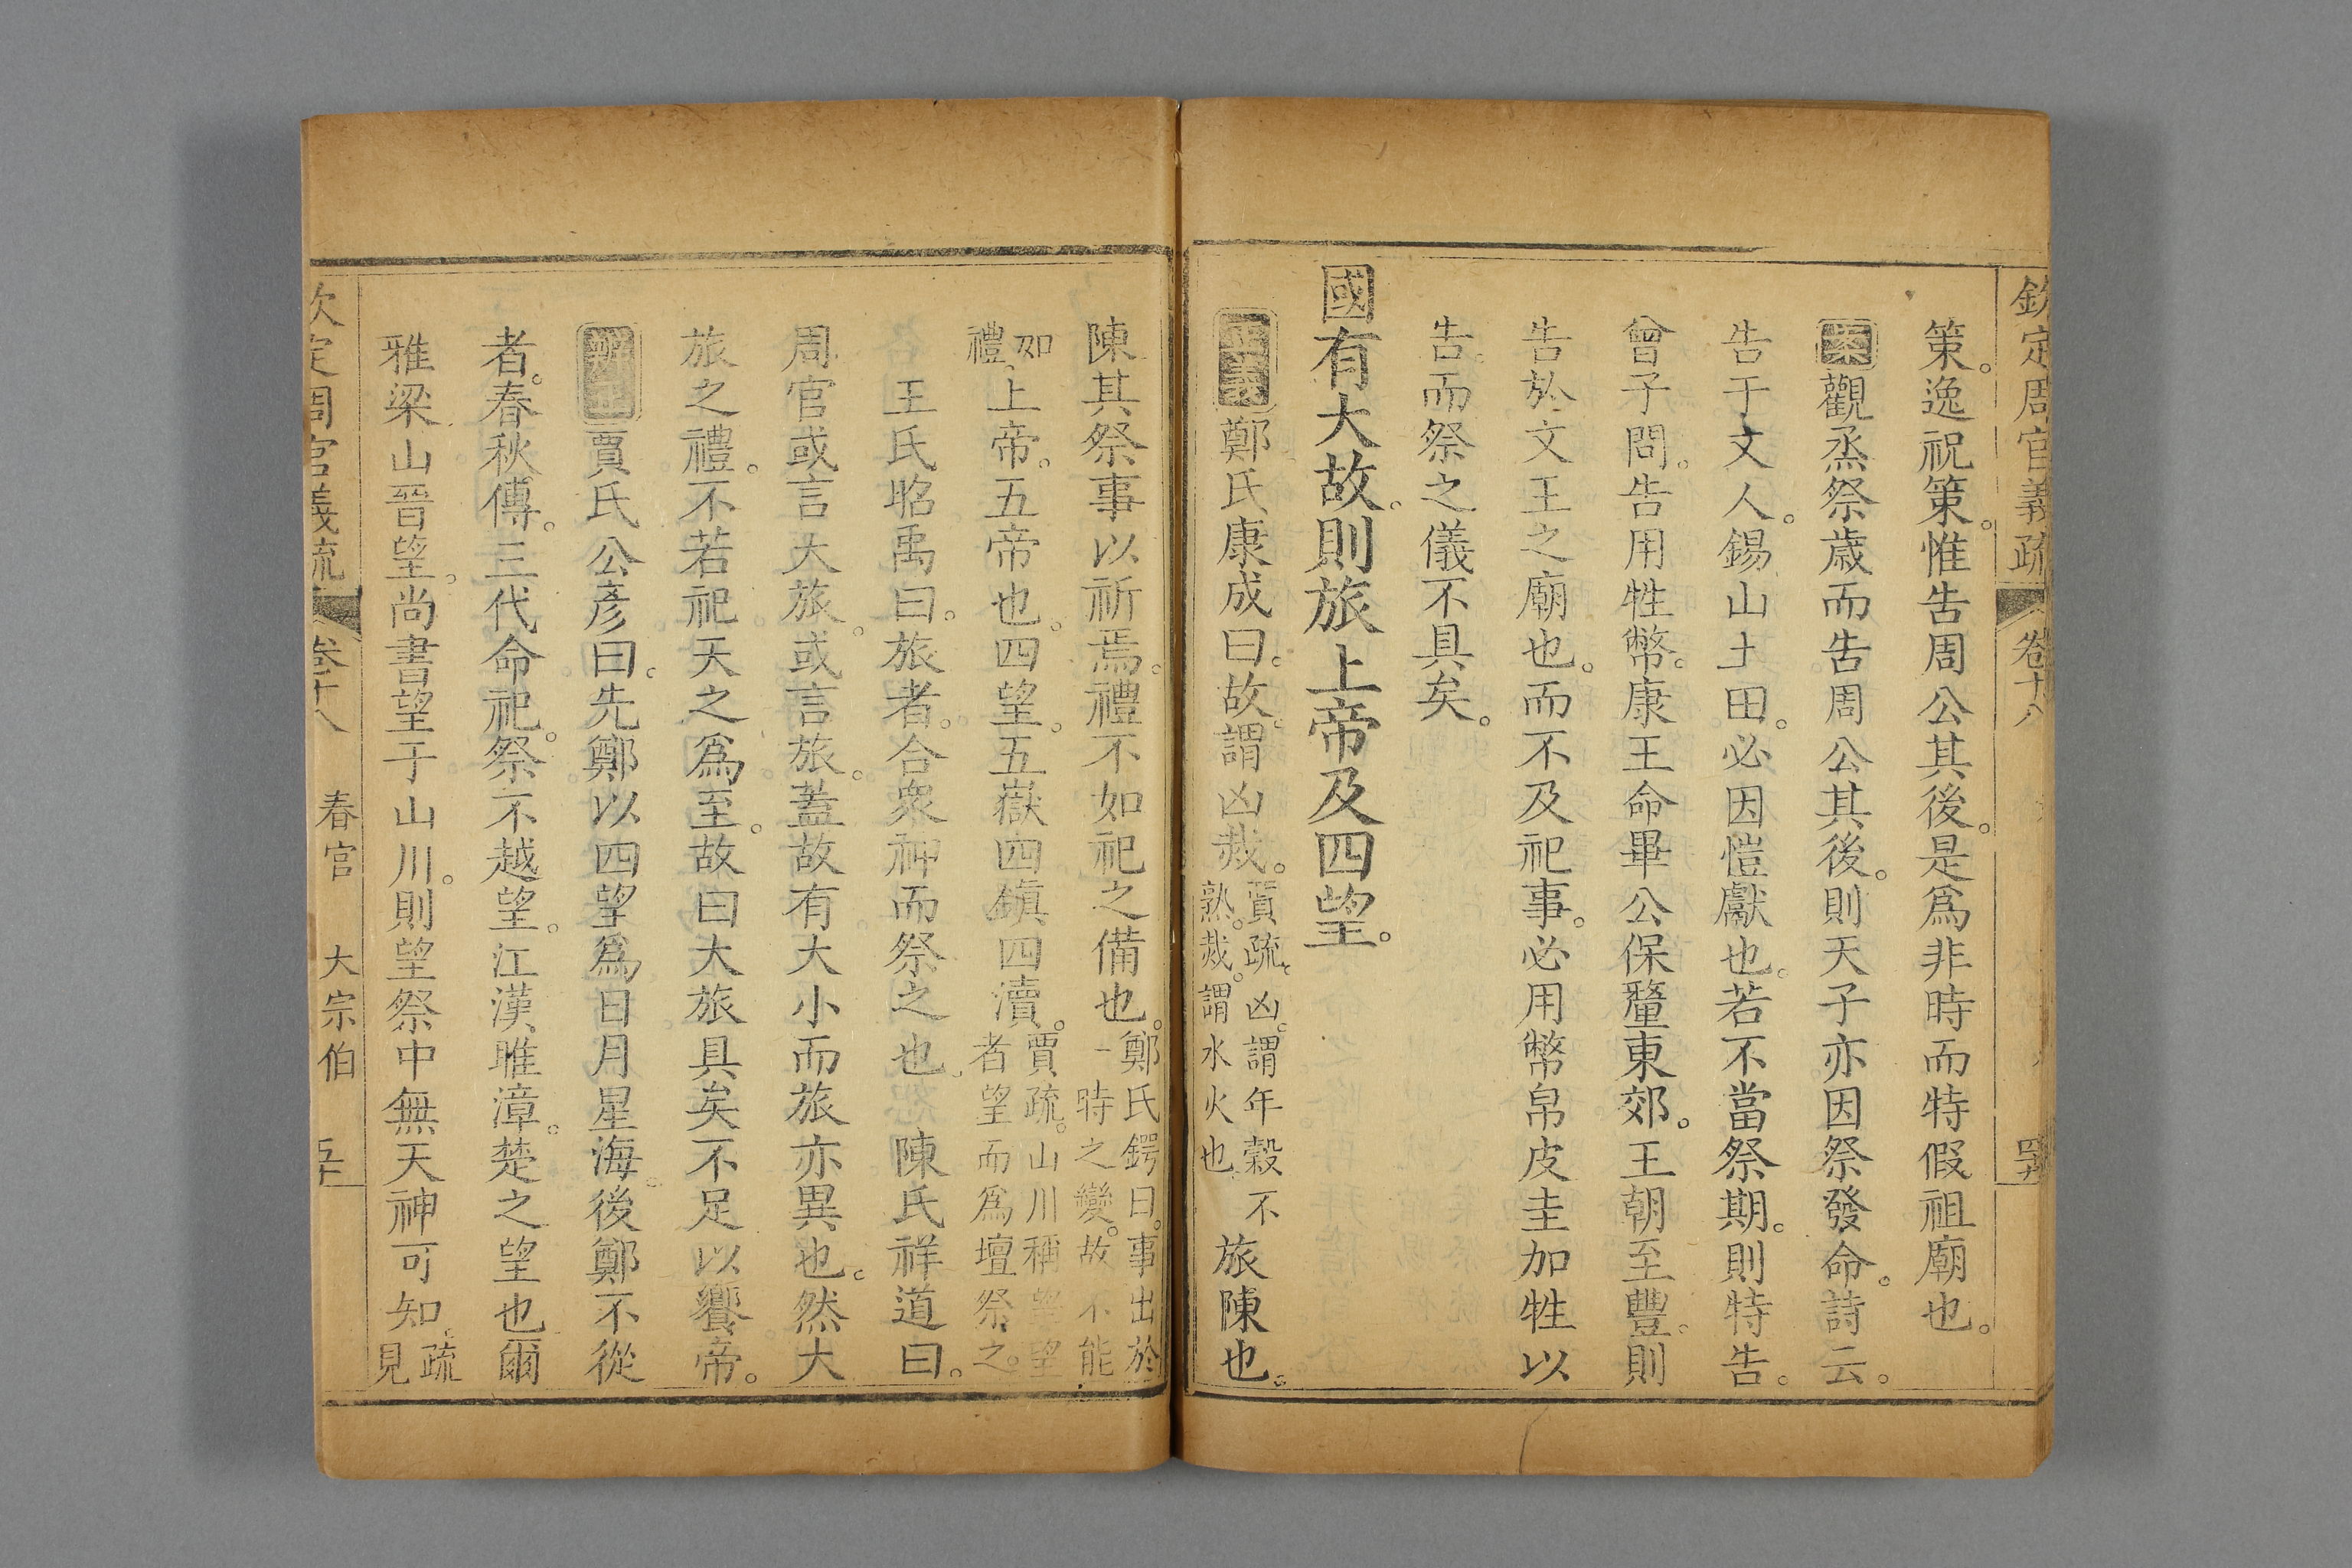 欽定周官義疏 卷十八
策。逸祝策。惟告周公其後。是爲非時而特假祖廟也。
案觀烝祭歲而告周公其後。則天子亦因祭發命。詩云。
告于文人。錫山土田。必因愷獻也。若不當祭期。則特告。
曾子問。告用牲幣。康王命畢公保釐東郊。王朝至豐。則
告於文王之廟也。而不及祀事。必用幣帛皮圭加牲以
告。而祭之儀不具矣。
國有大故。則旅上帝及四望。
正義鄭氏康成曰。故。謂凶烖。賈疏。凶。謂年穀不熟。烖。謂水火也。旅陳也。
陳其祭事以祈焉。禮不如祀之備也。鄭氏鍔曰。事出於一時之變。故不能如禮。
上帝。五帝也。四望。五嶽四鎮四瀆。賈疏。山川稱望望者望而爲壇祭之。
王氏昭禹曰。旅者。合衆神而祭之也 陳氏祥道曰。
周官或言大旅。或言旅。蓋故有大小而旅亦異也。然大
旅之禮。不若祀天之爲至。故曰大旅具矣不足以饗帝。
辨正賈氏公彥曰。先鄭以四望爲日月星海。後鄭不從
者。春秋傳。三代命祀。祭不越望。江漢雎漳。楚之望也爾
雅梁山晉望。尚書望于山川。則望祭中無天神可知。疏見
欽定周官義疏 卷十八 春官 大宗伯 五十